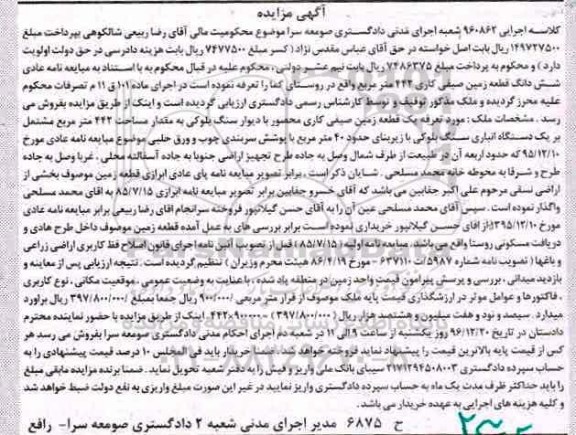 آگهی مزایده
کلاسه اجرایی ۹۶۰۸۶۲ شعبه اجرای مدنی دادگستری صومعه سرا موضوع محکومیت مالی آقای رضا ربیعی شالکوهی بپرداخت مبلغ
۱۴۹۷۲۷۵۰۰ ریال بابت اصل خواسته در حق آقای عباس مقدس نژاد (کسر مبلغ ۷۴۷۷۵۰۰ ریال بابت هزینه دادرسی در حق دولت اولویت
دارد) و محکوم به پرداخت مبلغ ۷۴۸۶۳۷۵ ریال بابت نیم عشر دولتی، محکوم علیه در قبال محکوم به با استناد به مبایعه نامه عادی
شش دانگ قطعه زمین صیفی کاری ۴۴۲ متر مربع واقع در روستای کما را تعرفه نموده است در اجرای ماده ۱۰۱ ق ا م تصرفات محکوم
علیه محرز گردیده و ملک مذکور توقیف و توسط کارشناس رسمی دادگستری ارزیابی گردیده است و اینک از طریق مزایده بفروش می
رسد. مشخصات ملک: مورد تعرفه یک قطعه زمین صیفی کاری محصور با دیوار سنگ بلوکی به مقدار مساحت ۴۴۲ متر مربع مشتمل
بر یک دستگاه انباری سنگ بلوکی با زیربنای حدود ۴۰ متر مربع با پوشش سربندی چوب و ورق حلبی موضوع مبایعه نامه عادی مورخ
۹۵/۱۲/۱۰ که حدود اربعه آن در طبیعت از طرف شمال وصل به جاده طرح تجهیز اراضی جنوبا به جاده آسفالته محلی، غربا وصل به جاده
طرح و شرقا به محوطه خانه محمد مسلحی. شایان ذکر است، برابر تصویر مبایعه نامه پای عادی ابرازی قطعه زمین موصوف بخشی از
اراضی نسقی مرحوم علی اکبر حقابین می باشد که آقای خسرو حقابین برابر تصویر مبایعه نامه ابرازی ۸۵/۷/۱۵ به اقای محمد مسلحی
واگذار نموده است. سپس آقای محمد مسلحی عین آن را به آقای حسن گیلانپور فروخته سرانجام اقای رضا ربیعی برابر مبایعه نامه عادی
مورخ ۱۳۹۵/۱۲/۱۰ از اقای حسن گیلانپور خریداری نموده است برابر بررسی های به عمل آمده قطعه زمین موصوف داخل طرح هادی و
دریافت مسکونی روستا واقع می باشد. مبایعه نامه اولیه (۸۵/۷/۱۵) قبل از تصویب آئین نامه اجرای قانون اصلاح حفظ کاربری اراضی زراعی
و باغها (تصویب نامه شماره ۵۹۸۷/ت ۶۳۷۱۱۰ مورخ ۸۶/۴/۱۹ هیئت محترم وزیران) تنظیم گردیده است. نتیجه ارزیابی پس از معاینه و
بازدید میدانی، بررسی و پرسش پیرامون قیمت واحد زمین در منطقه یاد شده، با عنایت به وضعیت عمومی، موقعیت مکانی، نوع کاربری
، فاکتورها و عوامل موثر در ارزشگذاری قیمت پایه ملک موصوف از قرار متر مربعی ۹۰۰/۰۰۰/ ریال جمعا بمبلغ ۳۹۷/۸۰۰/۰۰۰/ ریال براورد
میدارد. سیصد و نود و هفت میلیون و هشتصد هزار ریال (۳۹۷/۸۰۰/۰۰۰) =۹۰۰۰۰۰×۴۴۲ اینک از طریق مزایده با حضور نماینده محترم
دادستان در تاریخ ۹۶/۱۲/۲۰ روز یکشنبه از ساعت ۹ الی ۱۱ در شعبه دوم اجرای احکام مدنی دادگستری صومعه سرا بفروش می رسد هر
کس از قیمت پایه بالاترین قیمت را پیشنهاد نماید فروخت خواهد شد. ضمنا خریدار باید فی المجلس ۱۰ درصد قیمت پیشنهادی را به
حساب سپرده دادگستری ۲۱۷۱۲۹۴۵۰۸۰۰۳ سیبای بانک ملی واریز و فیش را به دفتر شعبه تحویل نماید. ضمنا برنده مزایده مابقی مبلغ
را باید حداکثر ظرف مدت یک ماه به حساب سپرده دادگستری واریز نمایید در غیر این صورت مبلغ واریزی به نفع دولت ضبط خواهد شد
و کلیه هزینه های اجرایی به عهده خریدار می باشد.
ح ۶۸۷۵ مدیر اجرای مدنی شعبه ۲ دادگستری صومعه سرا- رافع